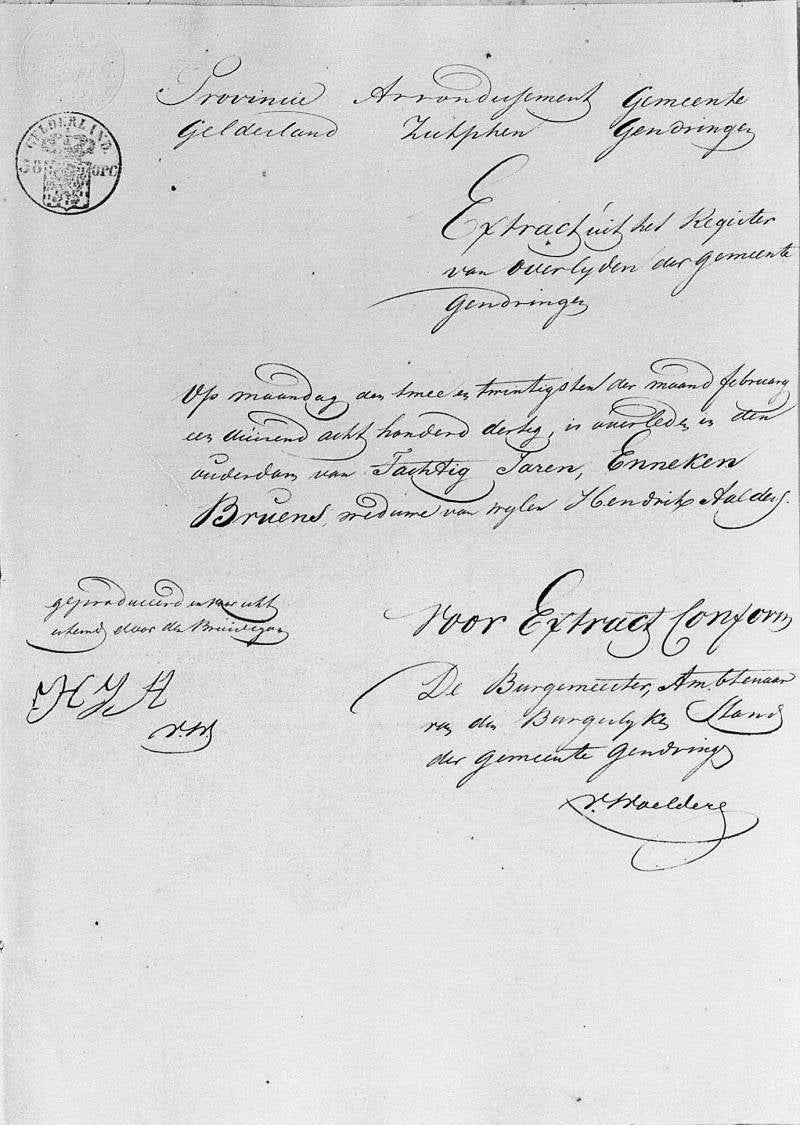 Provincie Arrondissement Gemeente
Gelderland Zutphen Gendringen
GELDERLAND.
38 OPC
Extract uit het Register
van overlyden der Gemeente
Gendringen
Op maandag den twee en twintigsten der maand february
een duizend acht honderd dertig, is overleden in den
ouderdom van Tachtig Jaren, Enneken
Bruens, weduwe van wylen Hendrik Aalders.
geproduceerd en voor echt
erkend door den Bruidegom
H J A
v.W.
Voor Extract Conform
De Burgemeester, Ambtenaar
van den Burgerlyken Stand
der Gemeente Gendringen